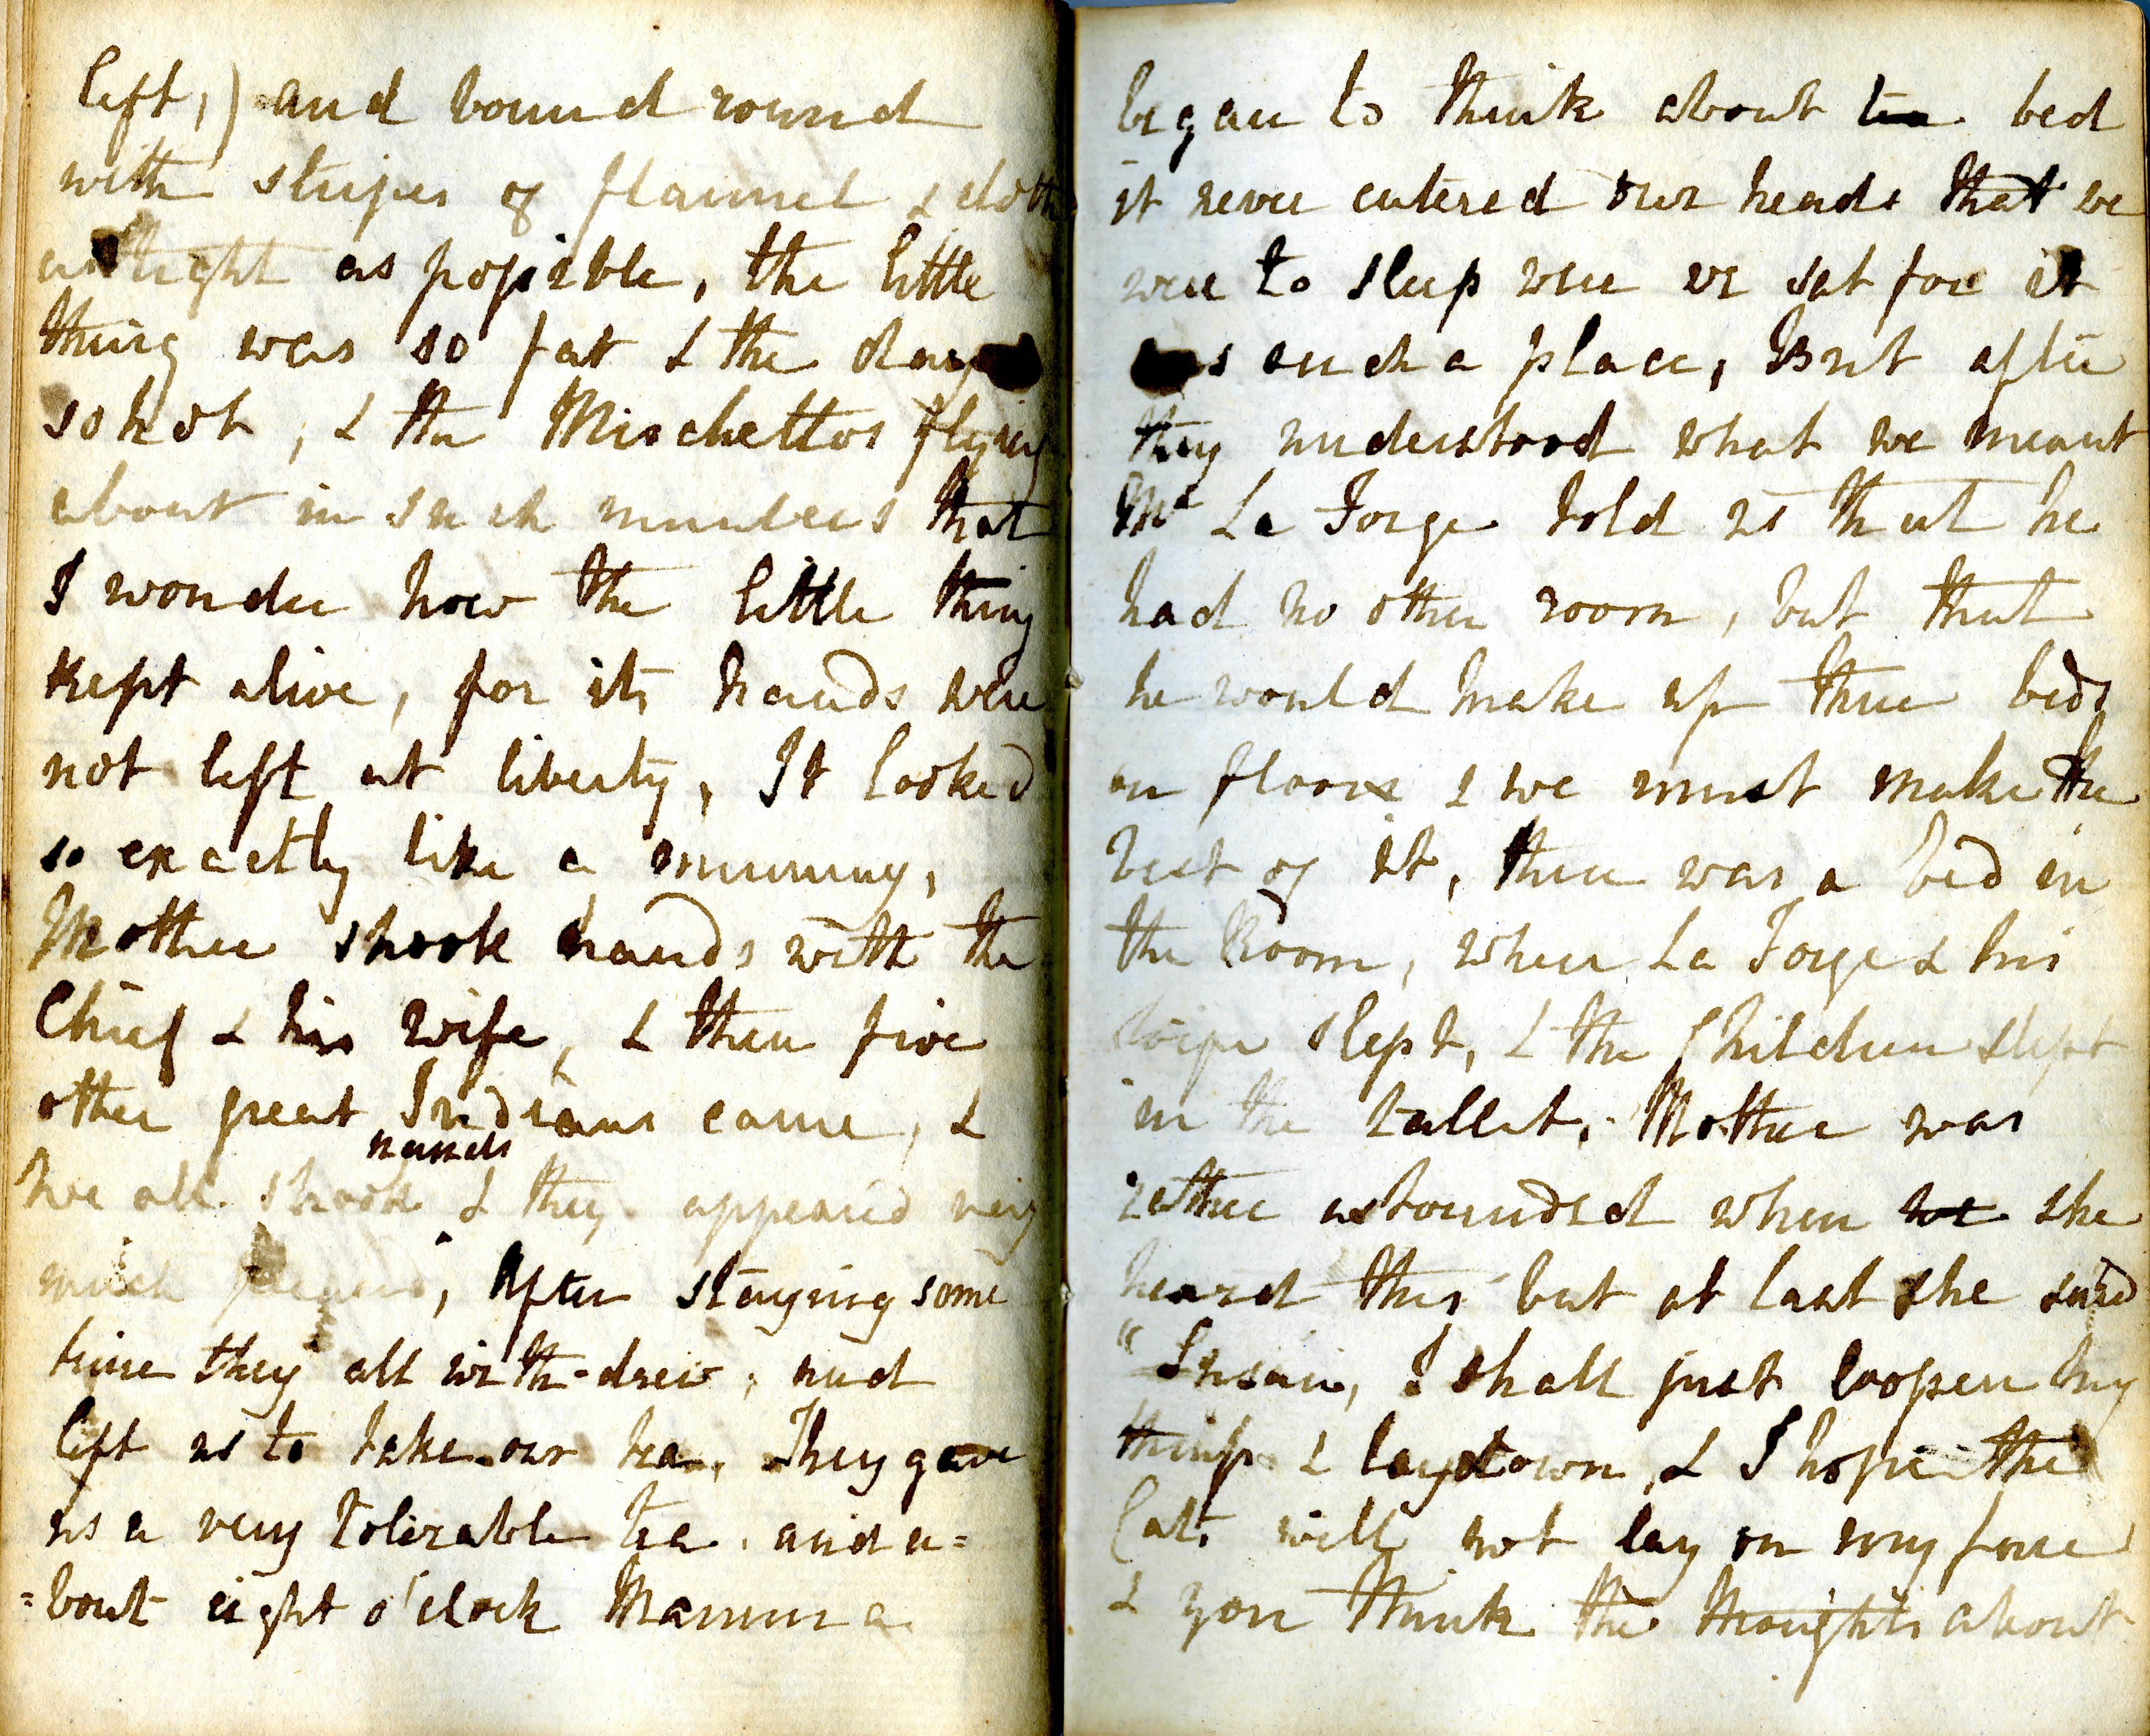 left,) and bound round
with stripes of flannel & cloth
as tight as possible, the little
thing was so fat & the day
so hot, & the Mischettos flying
about in such numbers that
I wonder how the little thing
kept alive, for its hands were
not left at liberty, It looked
so exactly like a mummy,
Mother shook hands with the
Chief & his wife, & then five
other great Indians came, &
hands
we all shook & they appeared very
much pleased, After staying some
time they all with-drew, and
left us to take our tea, They gave
us a very tolerable tea. and a=
=bout eight o'clock Mamma
began to think about tea bed
it never entered our heads that we
were to sleep were we sat for it
was such a place, But after
they understood what we meant
Mr La Forge told us that he
had no other room, but that
he would make up three beds
on floors & we must make the
best of it, there was a bed in
the Room, where La Forge & his
wife slept, & the Children slept
in the tallet, Mother was
rather astounded when we she
heard this but at last she said
"Susan, I shall just loosen my
things & lay down, & I hope the
Cats will not lay on my face
& you think the thoughts about